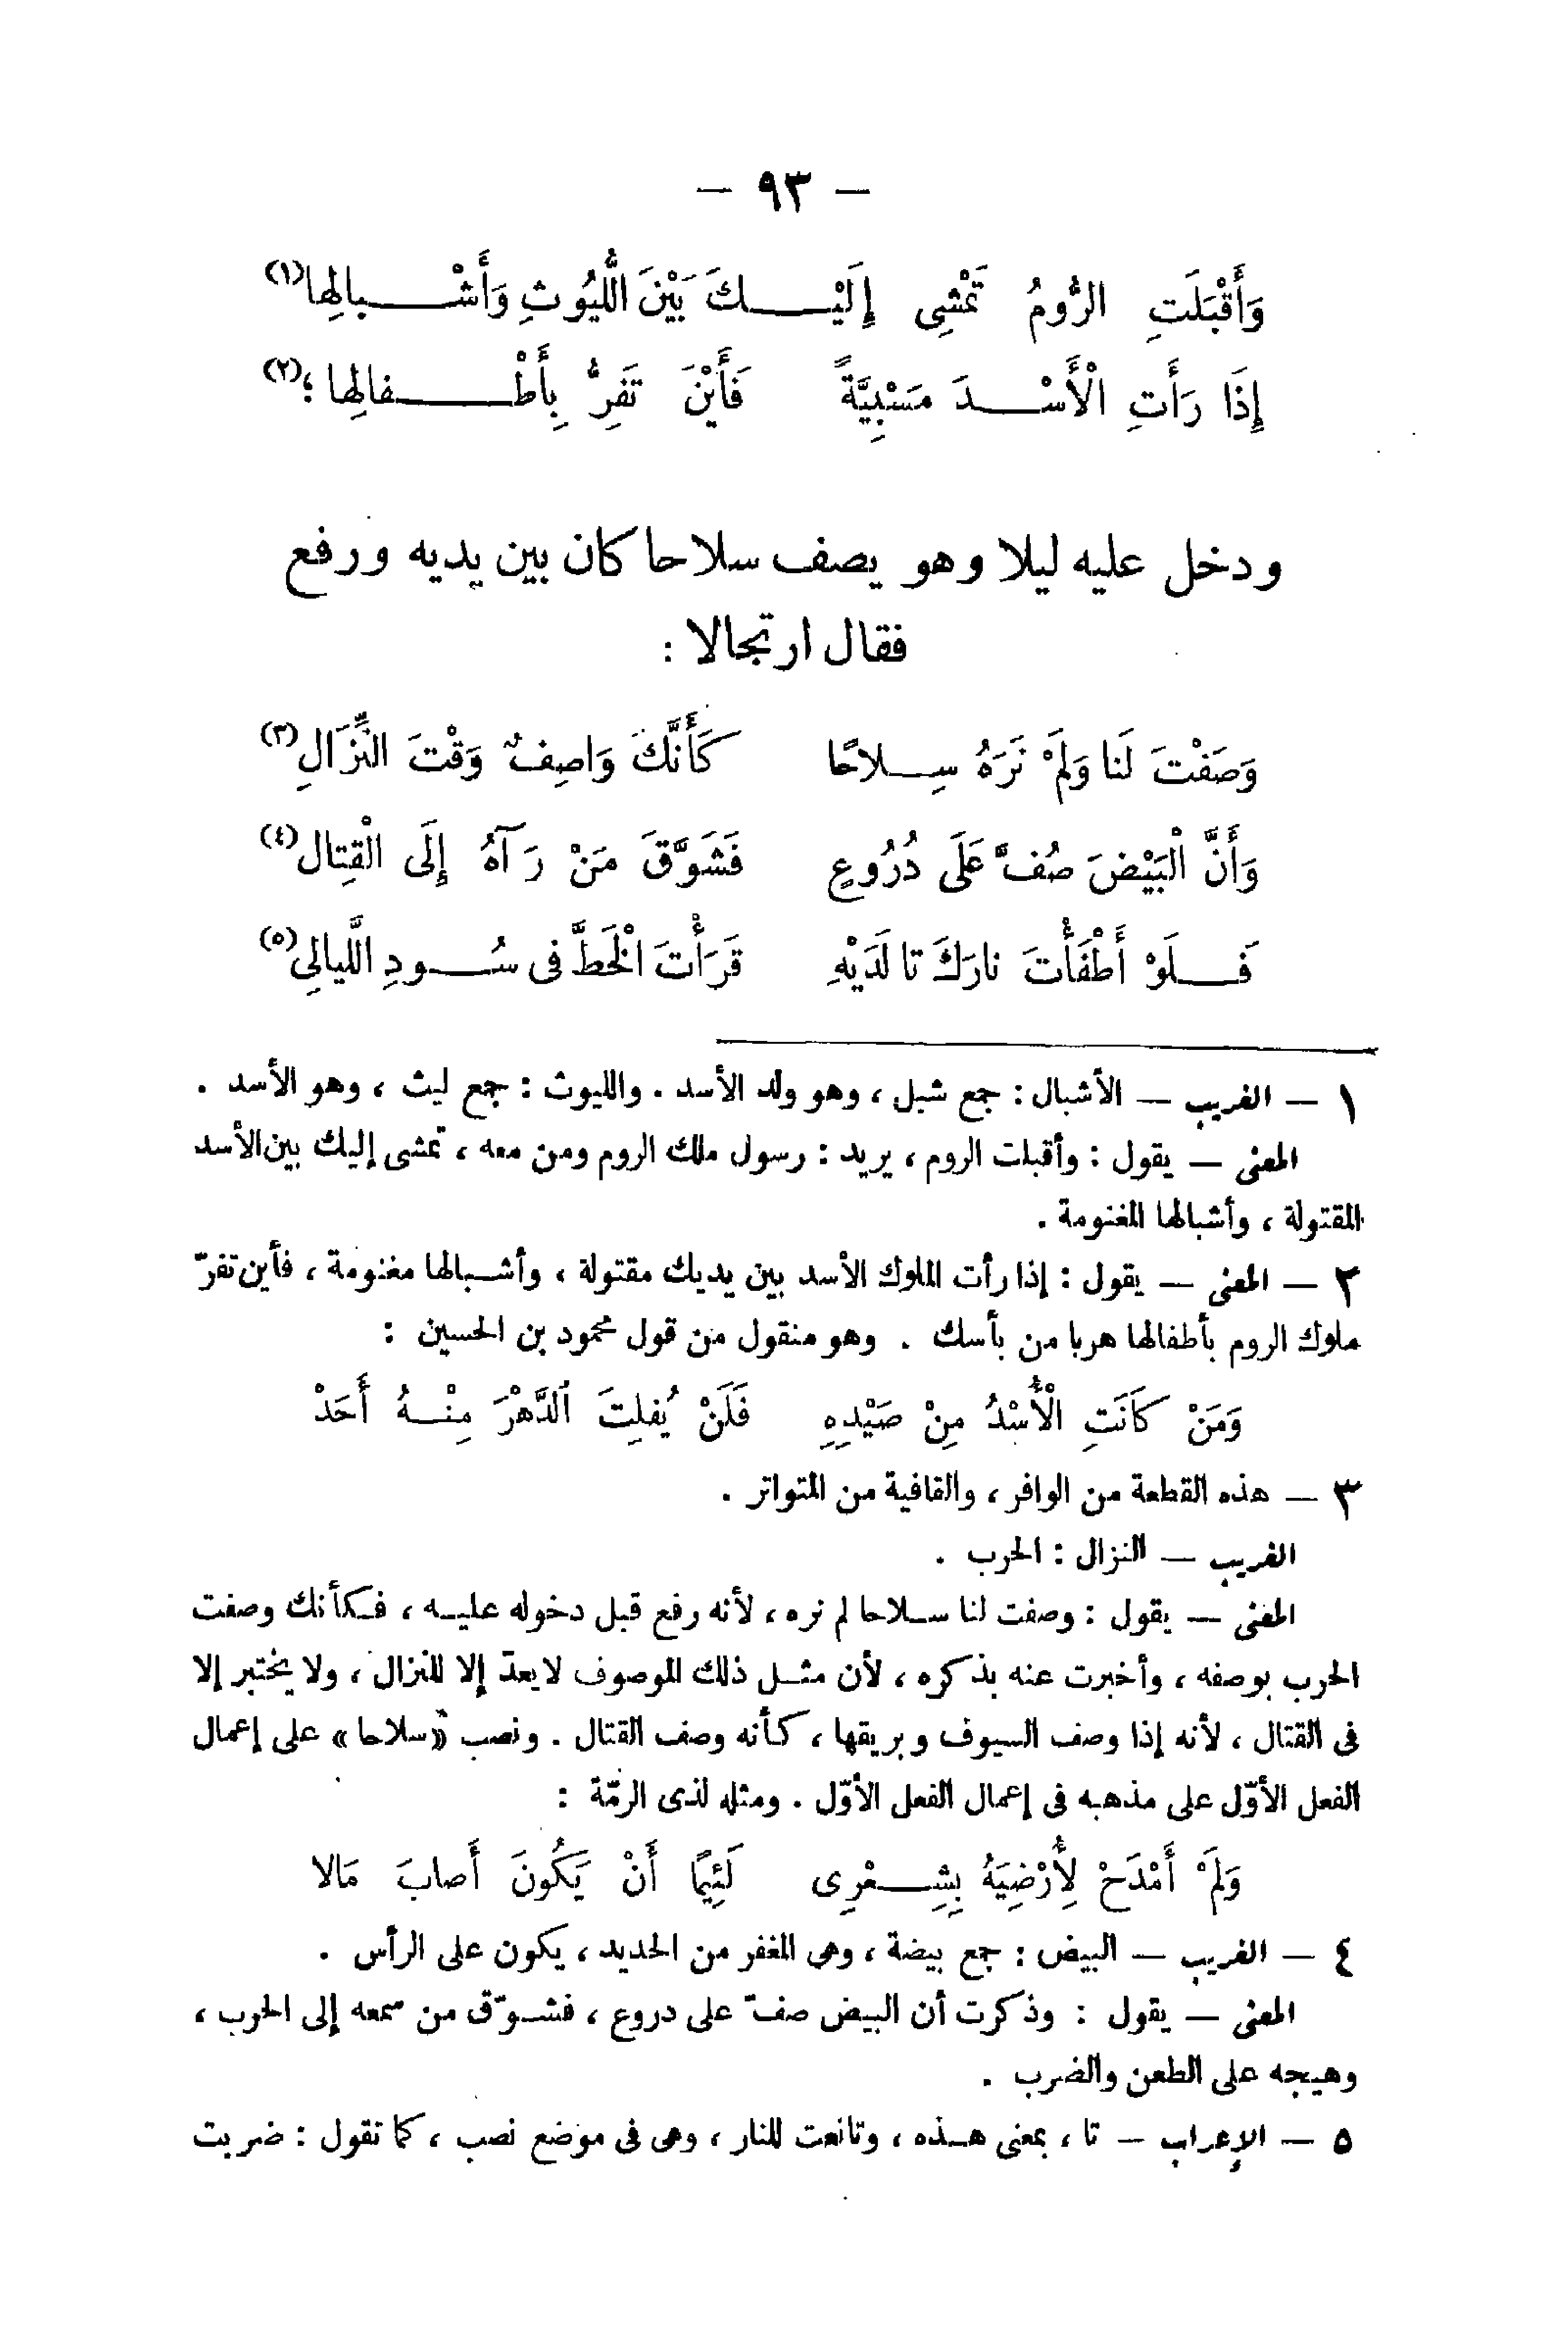 — ٩٣ —
وَأَقْبَلَتِ الرُّومُ تَمْشِى إِلَيْـكَ بَيْنَ اللُّيُوثِ وَأَشْـبالِها(١)
إِذَا رَأَتِ الْأَسْـدَ مَسْبِيَّةً فَأَيْنَ تَفِرُّ بِأَطْـفالِها ؛(٢)
ودخل عليه ليلا وهو يصف سلاحا كان بين يديه ورفع
فقال ارتجالا :
وَصَفْتَ لَنا وَلَمْ نَرَهُ سِـلاحًا كَأَنَّكَ وَاصِفٌ وَقْتَ النِّزَالِ(٣)
وَأَنَّ الْبَيْضَ صُفَّ عَلَى دُرُوعٍ فَشَوَّقَ مَنْ رَآهُ إِلَى الْقِتال(٤)
فَـلَوْ أَطْفَأْتَ نارَكَ تا لَدَيْهِ قَرَأْتَ الْخَطَّ فى سُـودِ اللَّيالِى(٥)
١ — الغريب — الأشبال : جمع شبل ، وهو ولد الأسد . والليوث : جمع ليث ، وهو الأسد .
المعنى — يقول : وأقبلت الروم ، يريد : رسول ملك الروم ومن معه ، تمشى إليك بين الأسد
المقتولة ، وأشبالها المغنومة .
٢ — المعنى — يقول : إذا رأت الملوك الأسد بين يديك مقتولة ، وأشـبالها مغنومة ، فأين تفرّ
ملوك الروم بأطفالها هربا من بأسك . وهو منقول من قول محمود بن الحسين :
وَمَنْ كَانَتِ الْأُسْدُ مِنْ صَيْدِهِ فَلَنْ يُفلِتَ الدَّهْرَ مِنْـهُ أَحَدْ
٣ — هذه القطعة من الوافر ، والقافية من المتواتر .
الغريب — النزال : الحرب .
المعنى — يقول : وصفت لنا سـلاحا لم نره ، لأنه رفع قبل دخوله عليـه ، فـكأنك وصفت
الحرب بوصفه ، وأخبرت عنه بذكره ، لأن مثـل ذلك الموصوف لا يعدّ إلا للنزال ، ولا يختبر إلا
فى القتال ، لأنه إذا وصف السيوف وبريقها ، كأنه وصف القتال . ونصب « سلاحا » على إعمال
الفعل الأوّل على مذهبه فى إعمال الفعل الأوّل . ومثله لذى الرمّة :
وَلَمْ أَمْدَحْ لِأُرْضِيَهُ بِشِـعْرِى لَئِيمًا أَنْ يَكُونَ أَصابَ مَالا
٤ — الغريب — البيض : جمع بيضة ، وهى المغفر من الحديد ، يكون على الرأس .
المعنى — يقول : وذكرت أن البيض صفّ على دروع ، فشـوّق من سمعه إلى الحرب ،
وهيجه على الطعن والضرب .
٥ — الإعراب — تا ، بمعنى هـذه ، وتا نعت للنار ، وهى فى موضع نصب ، كما تقول : ضربت